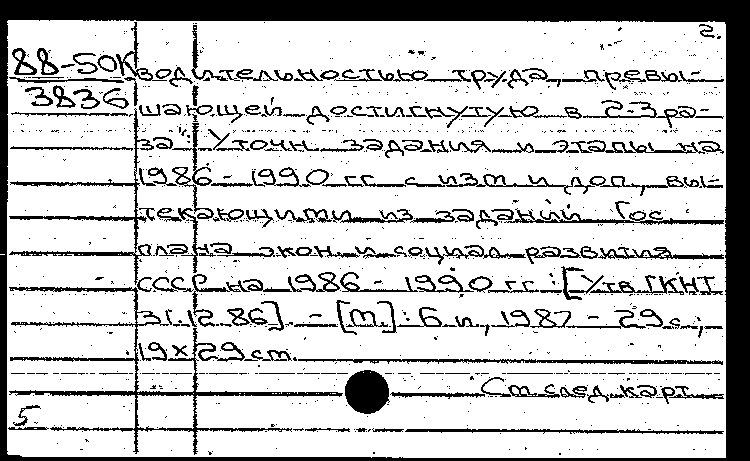 2.
88-50К водительностью труда, превы-
3836 шающей достигнутую в 2-3 ра-
за": Уточн. задания и этапы на
1986 - 1990 гг. с изм. и доп., вы-
текающими из заданий Гос.
плана экон. и социал. развития
СССР на 1986 - 1990 гг.: [Утв. ГКНТ
31.12.86]. - [М.]: Б. и., 1987 - 29 с.;
19×29 см.
См. след. карт.
5